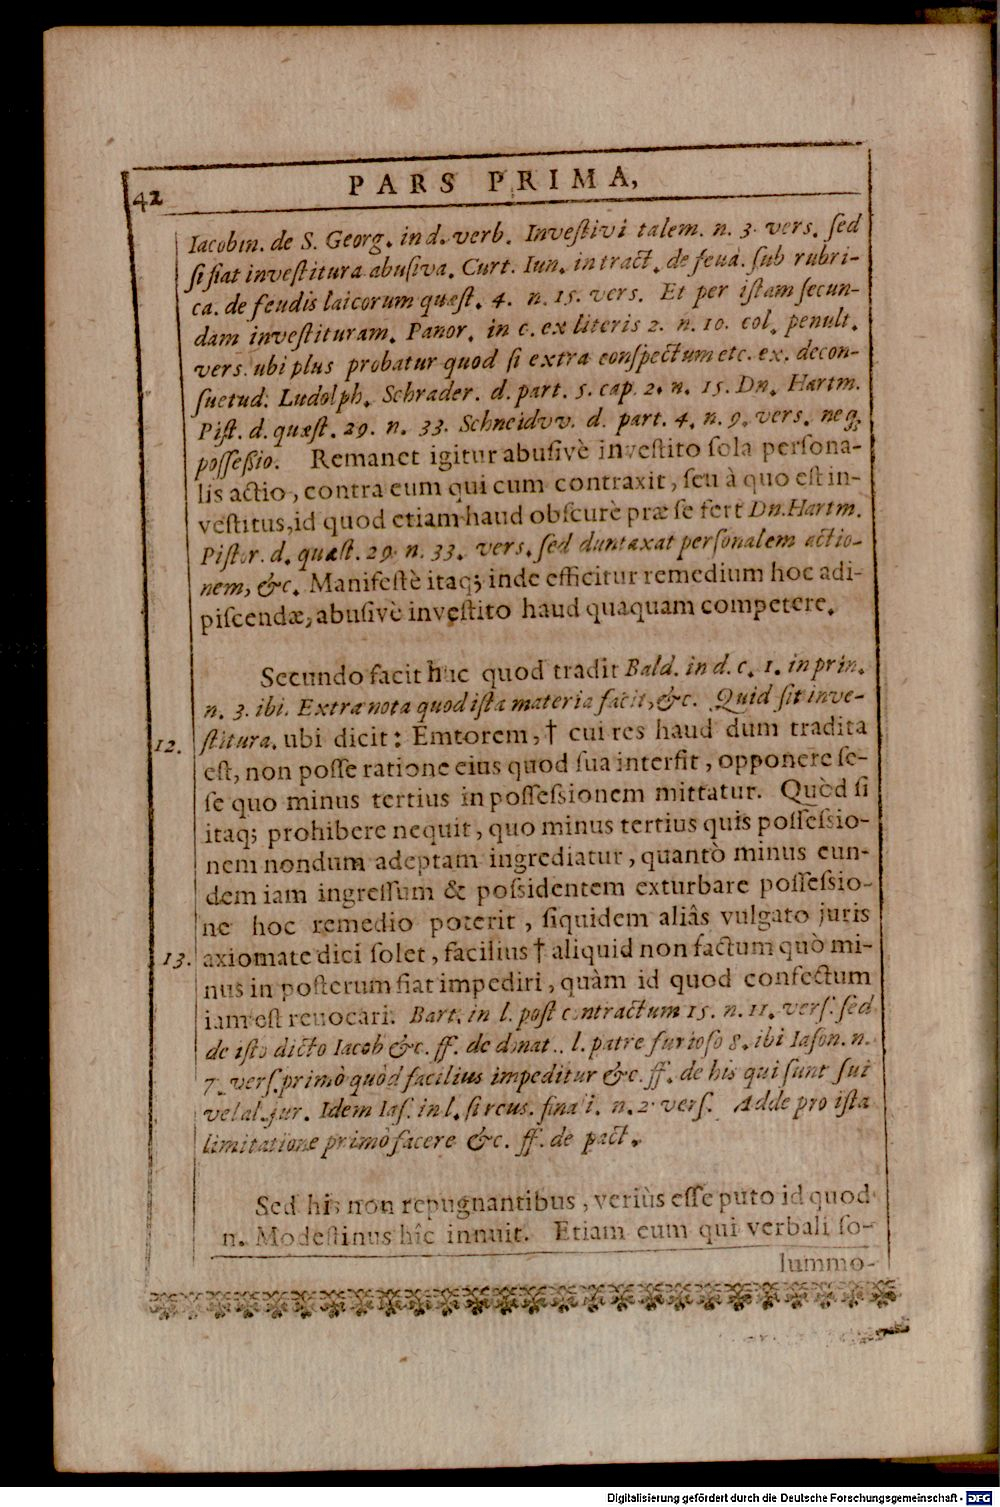 42
PARS PRIMA,
Iacobin. de S. Georg. in d. verb. Investivi talem. n. 3. vers. sed
si fiat investitura abusiva. Curt. Iun. in tract. de feud. sub rubri-
ca. de feudis laicorum quæst. 4. n. 15. vers. Et per istam secun-
dam investituram. Panor. in c. ex literis 2. n. 10. col. penult.
vers. ubi plus probatur quod si extra conspectum etc. ex. de con-
suetud. Ludolph. Schrader. d. part. 5. cap. 2. n. 15. Dn. Hartm.
Pist. d. quæst. 29. n. 33. Schneidvv. d. part. 4. n. 9. vers. neq;
possessio. Remanet igitur abusivè investito sola persona-
lis actio, contra eum qui cum contraxit, seu à quo est in-
vestitus, id quod etiam haud obscurè præ se fert Dn. Hartm.
Pistor. d. quæst. 29. n. 33. vers. sed duntaxat personalem actio-
nem, &c. Manifestè itaq; inde efficitur remedium hoc adi-
piscendæ, abusivè investito haud quaquam competere.
Secundo facit huc quod tradit Bald. in d. c. 1. in prin.
n. 3. ibi. Extra nota quod ista materia facit, &c. Quid sit inve-
12. stitura. ubi dicit: Emtorem, † cui res haud dum tradita
est, non posse ratione eius quod sua intersit, opponere se-
se quo minus tertius in possessionem mittatur. Quòd si
itaq; prohibere nequit, quo minus tertius quis possessio-
nem nondum adeptam ingrediatur, quantò minus eun-
dem iam ingressum & possidentem exturbare possessio-
ne hoc remedio poterit, siquidem aliâs vulgato juris
13. axiomate dici solet, facilius † aliquid non factum quò mi-
nus in posterum fiat impediri, quàm id quod confectum
iam est revocari. Bart. in l. post contractum 15. n. 11. vers. sed
de isto dicto Iacob &c. ff. de donat.. l. patre furioso 8. ibi Iason. n.
7. vers. primò quòd facilius impeditur &c. ff. de his qui sunt sui
vel al. jur. Idem Ias. in l. si reus. fina i. n. 2. vers. Adde pro ista
limitatione primò facere &c. ff. de pact.
Sed his non repugnantibus, veriùs esse puto id quod
n. Modestinus hîc innuit. Etiam eum qui verbali so-
lummo-
Digitalisierung gefördert durch die Deutsche Forschungsgemeinschaft - DFG